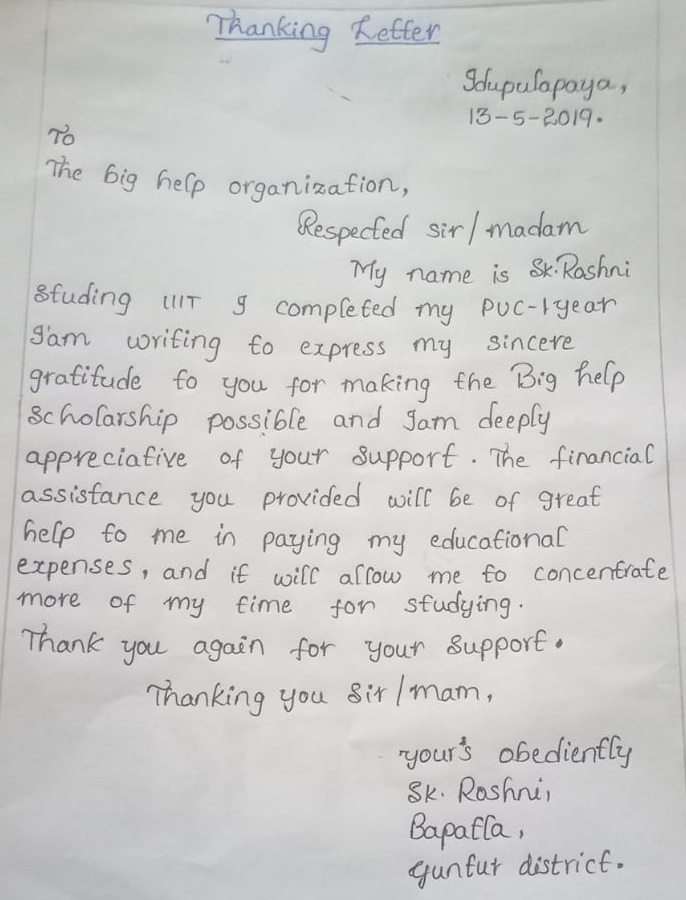 Thanking Letter
Idupulapaya,
13-5-2019.
To
The big help organization,
Respected sir/madam
My name is Sk.Roshni
Studing IIIT I completed my PUC-1year
I'am writing to express my sincere
gratitude to you for making the Big help
Scholarship possible and Iam deeply
appreciative of your support. The financial
assistance you provided will be of great
help to me in paying my educational
expenses, and it will allow me to concentrate
more of my time for studying.
Thank you again for your support.
Thanking you Sir/mam,
your's obediently
Sk. Roshni,
Bapatla,
Guntur district.